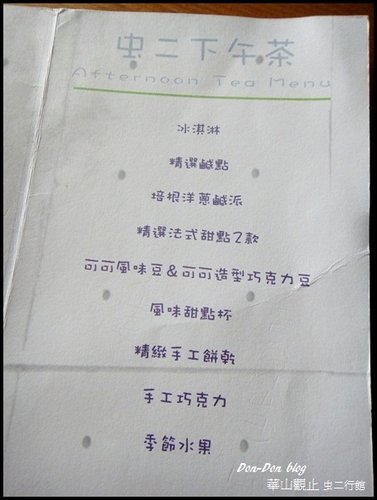 虫二下午茶
Afternoon Tea Menu
冰淇淋
精選鹹點
培根洋蔥鹹派
精選法式甜點2款
可可風味豆&可可造型巧克力豆
風味甜點杯
精緻手工餅乾
手工巧克力
季節水果
Don-Don blog
華山觀止 虫二行館